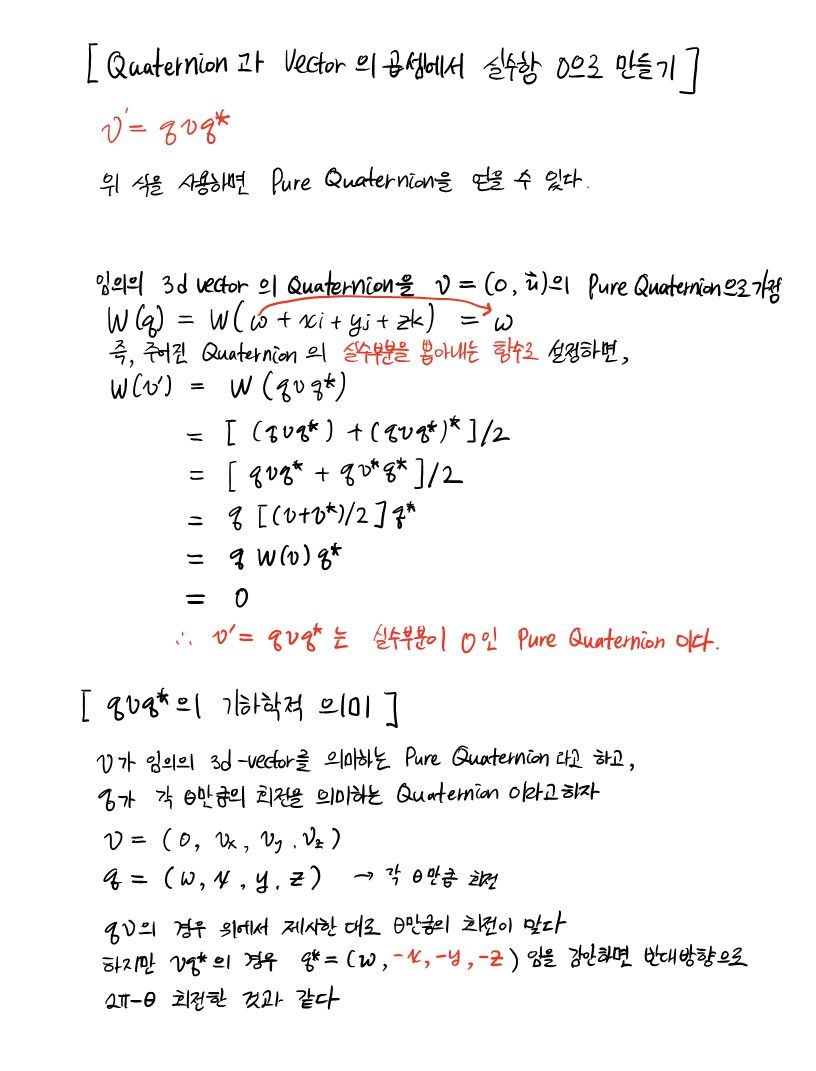 [ Quaternion과 Vector의 곱셈에서 실수항 0으로 만들기 ]
v' = qvq*
위 식을 사용하면 Pure Quaternion을 얻을 수 있다.
임의의 3d vector 의 Quaternion을 v = (0, u⃗)의 Pure Quaternion으로 가정
W(q) = W(w + xi + yj + zk) = w
즉, 주어진 Quaternion 의 실수부분을 뽑아내는 함수로 설정하면,
W(v') = W(qvq*)
= [ (qvq*) + (qvq*)* ]/2
= [ qvq* + qv*q* ]/2
= q [(v+v*)/2 ] q*
= q W(v) q*
= 0
∴ v' = qvq* 는 실수부분이 0인 Pure Quaternion 이다.
[ qvq* 의 기하학적 의미 ]
v가 임의의 3d-vector를 의미하는 Pure Quaternion 라고 하고,
q가 각 θ만큼의 회전을 의미하는 Quaternion 이라고하자
v = (0, vx, vy, vz)
q = (w, x, y, z) → 각 θ만큼 회전
qv의 경우 위에서 제시한 대로 θ만큼의 회전이 맞다
하지만 vq*의 경우 q* = (w, -x, -y, -z) 임을 감안하면 반대방향으로
2π-θ 회전한 것과 같다